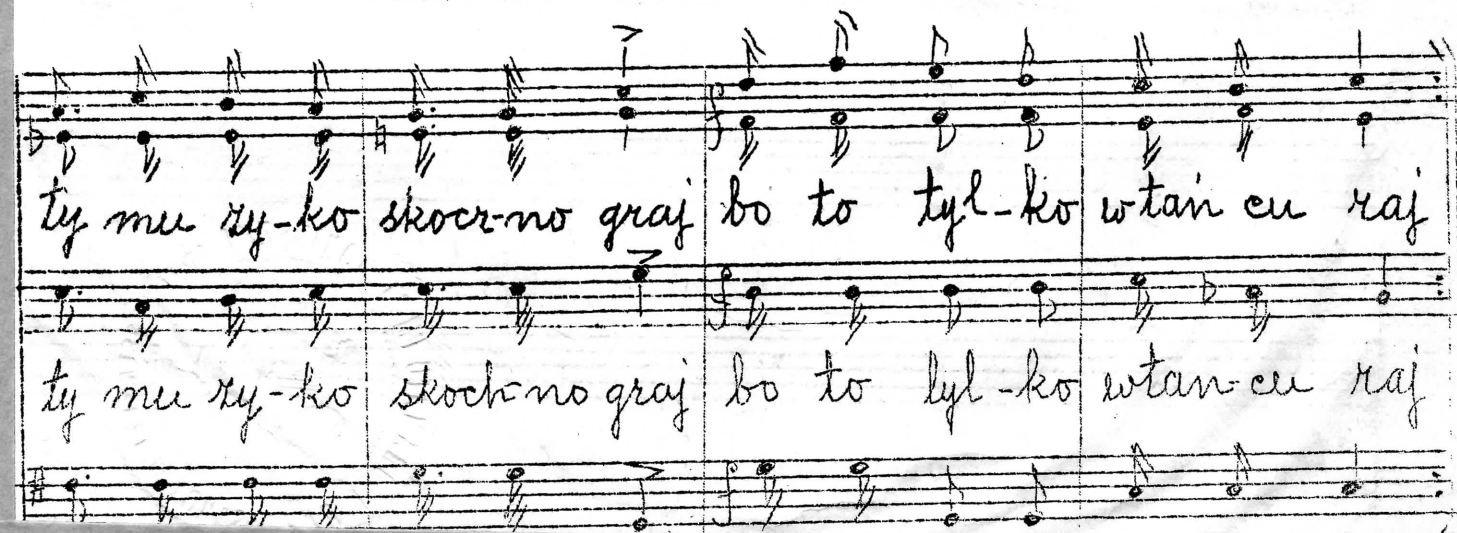 ty mu zy-ko skocz-no graj bo to tyl-ko w tań cu raj
ty mu zy-ko skoch-no graj bo to lyl-ko w tan-cu raj